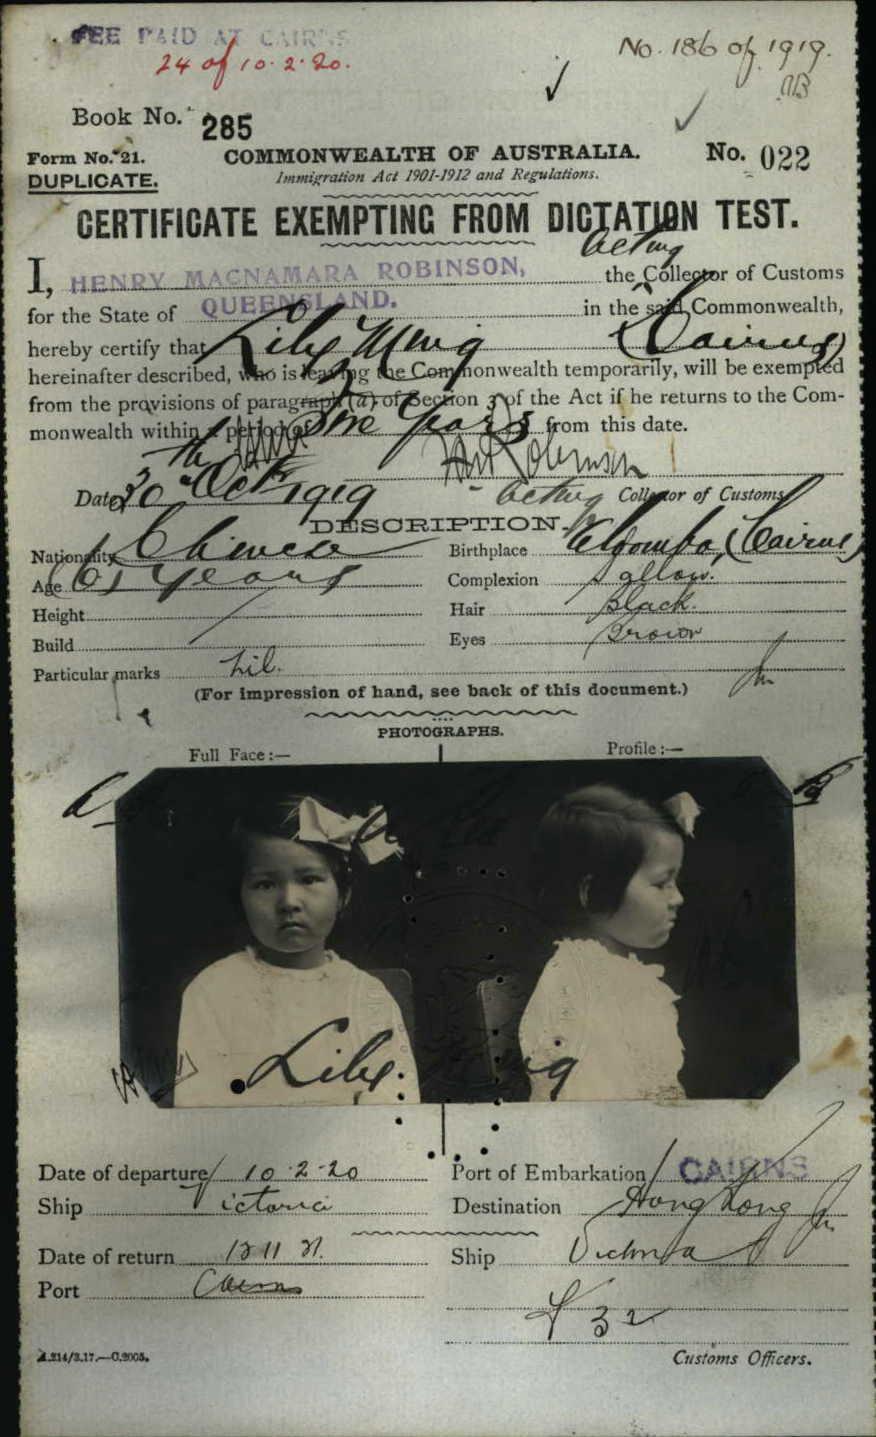 FEE PAID AT CAIRNS
24 of 10.2.20.
No. 186 of 1919.
Book No. 285
Form No. 21.
COMMONWEALTH OF AUSTRALIA.
No. 022
DUPLICATE.
Immigration Act 1901-1912 and Regulations.
CERTIFICATE EXEMPTING FROM DICTATION TEST.
Acting
I, HENRY MACNAMARA ROBINSON, the Collector of Customs
for the State of QUEENSLAND. in the said Commonwealth,
hereby certify that Lily Ming (Cairns)
hereinafter described, who is leaving the Commonwealth temporarily, will be exempted
from the provisions of paragraph (a) of Section 3 of the Act if he returns to the Com-
monwealth within a period of Three Years from this date.
Date 30th Oct 1919
Acting Collector of Customs
DESCRIPTION.
Nationality Chinese
Birthplace (Cairns)
Age 6 years
Complexion Sallow.
Height
Hair Black.
Build
Eyes Brown
Particular marks Nil.
(For impression of hand, see back of this document.)
PHOTOGRAPHS.
Full Face :—
Profile :—
Lily Ming
Date of departure 10.2.20
Port of Embarkation CAIRNS
Ship Victoria
Destination Hong Kong
Date of return 13 11 21.
Ship Victoria
Port Cairns
A.214/3.17.—C.2005.
Customs Officers.